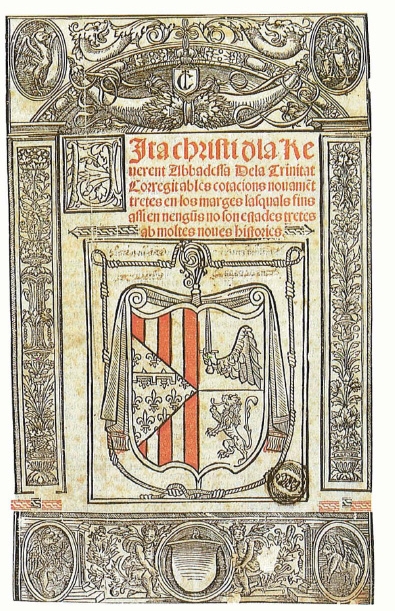 C
Vita christi dla Re
uerent Abbadessa Dela Trinitat
Corregit ab les cotacions nouamēt
tretes en los marges lasquals fins
assi en nengūs no son estades tretes
ab moltes noues histories.